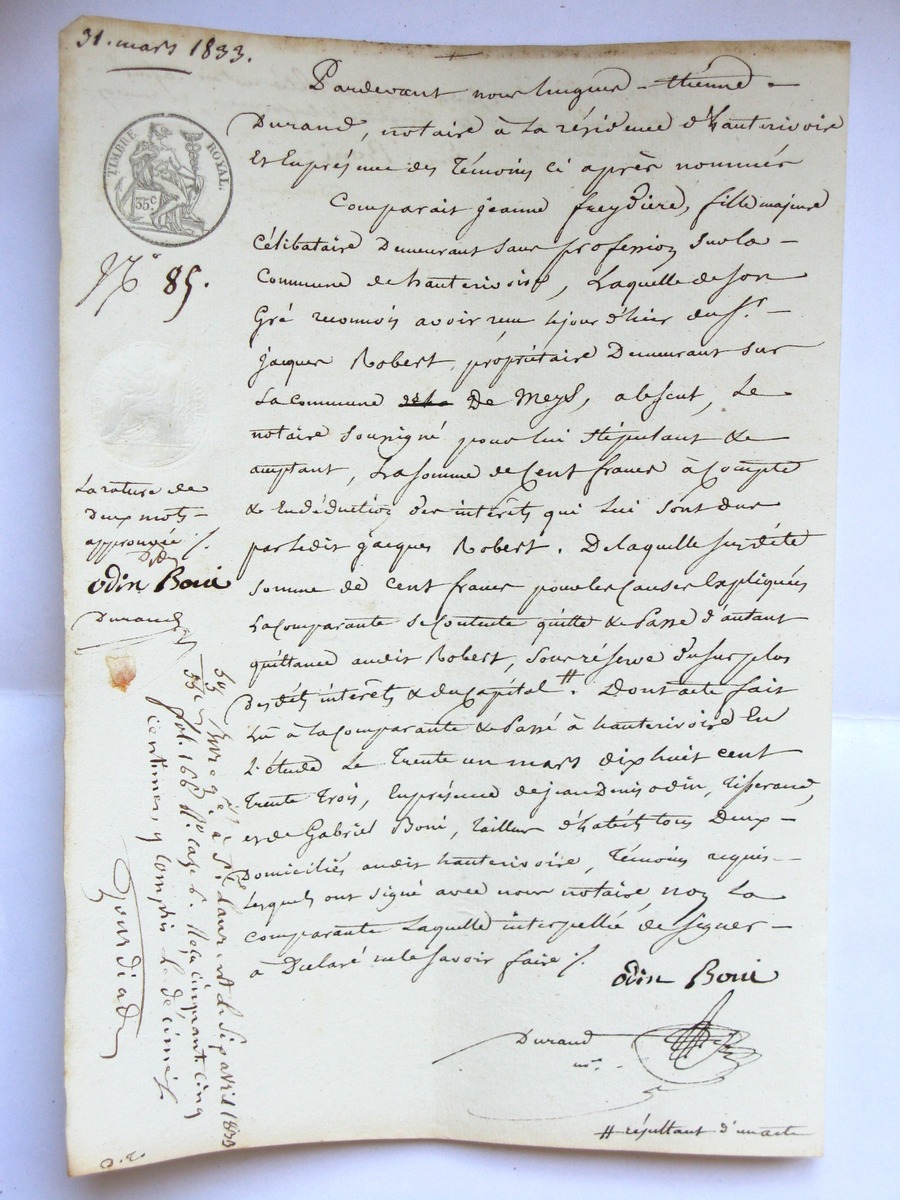 31. mars 1833.
Pardevant nous hugues - étienne -
Durand, notaire à La résidence d'hauterivoire
Et En présence des Témoins ci après nommés
TIMBRE ROYAL.
35c
Comparait jeanne freydière, fille majeure
Célibataire Demeurant sans profession sur la -
Commune de hauterivoire, Laquelle de son
N° 85.
Gré reconnois avoir reçu le jour d'hier du Sr. -
jacques Robert, propriétaire Demeurant sur
La commune De Meys, absent, Le
notaire soussigné pour lui stipulant &
acceptant, La somme de Cent francs à Compte
& En déduction des intérêts qui lui sont dus
par ledit jacques Robert. De laquelle susdite
somme de cent francs pour les Causes Expliquées
La comparante se Contente quitte & Passe d'autant
quittance audit Robert, sous réserve du surplus
desdits intérêts & du Capital #. Dont acte fait
Lu à la comparante & Passé à hauterivoire En
L'étude Le Trente un mars dix huit cent
Trente Trois, En présence de jean Denis odin, Tisserand,
et de Gabriel Boni, tailleur d'habits tous Deux -
Domiciliés audit hauterivoire, Témoins requis -
Lesquels ont signé avec nous notaire, non La
comparante Laquelle interpellée de signer -
à Déclaré ne le savoir faire ./.
odin Boni
Durand
nre.
# résultant d'un acte
La rature de
deux mots -
approuvée ./.
odin Boni
Durand
Enregé à St Laurent Le Sept avril 1833
fol. 166 Ro case 6. Reçu cinquante cinq
centimes y compris Le décime